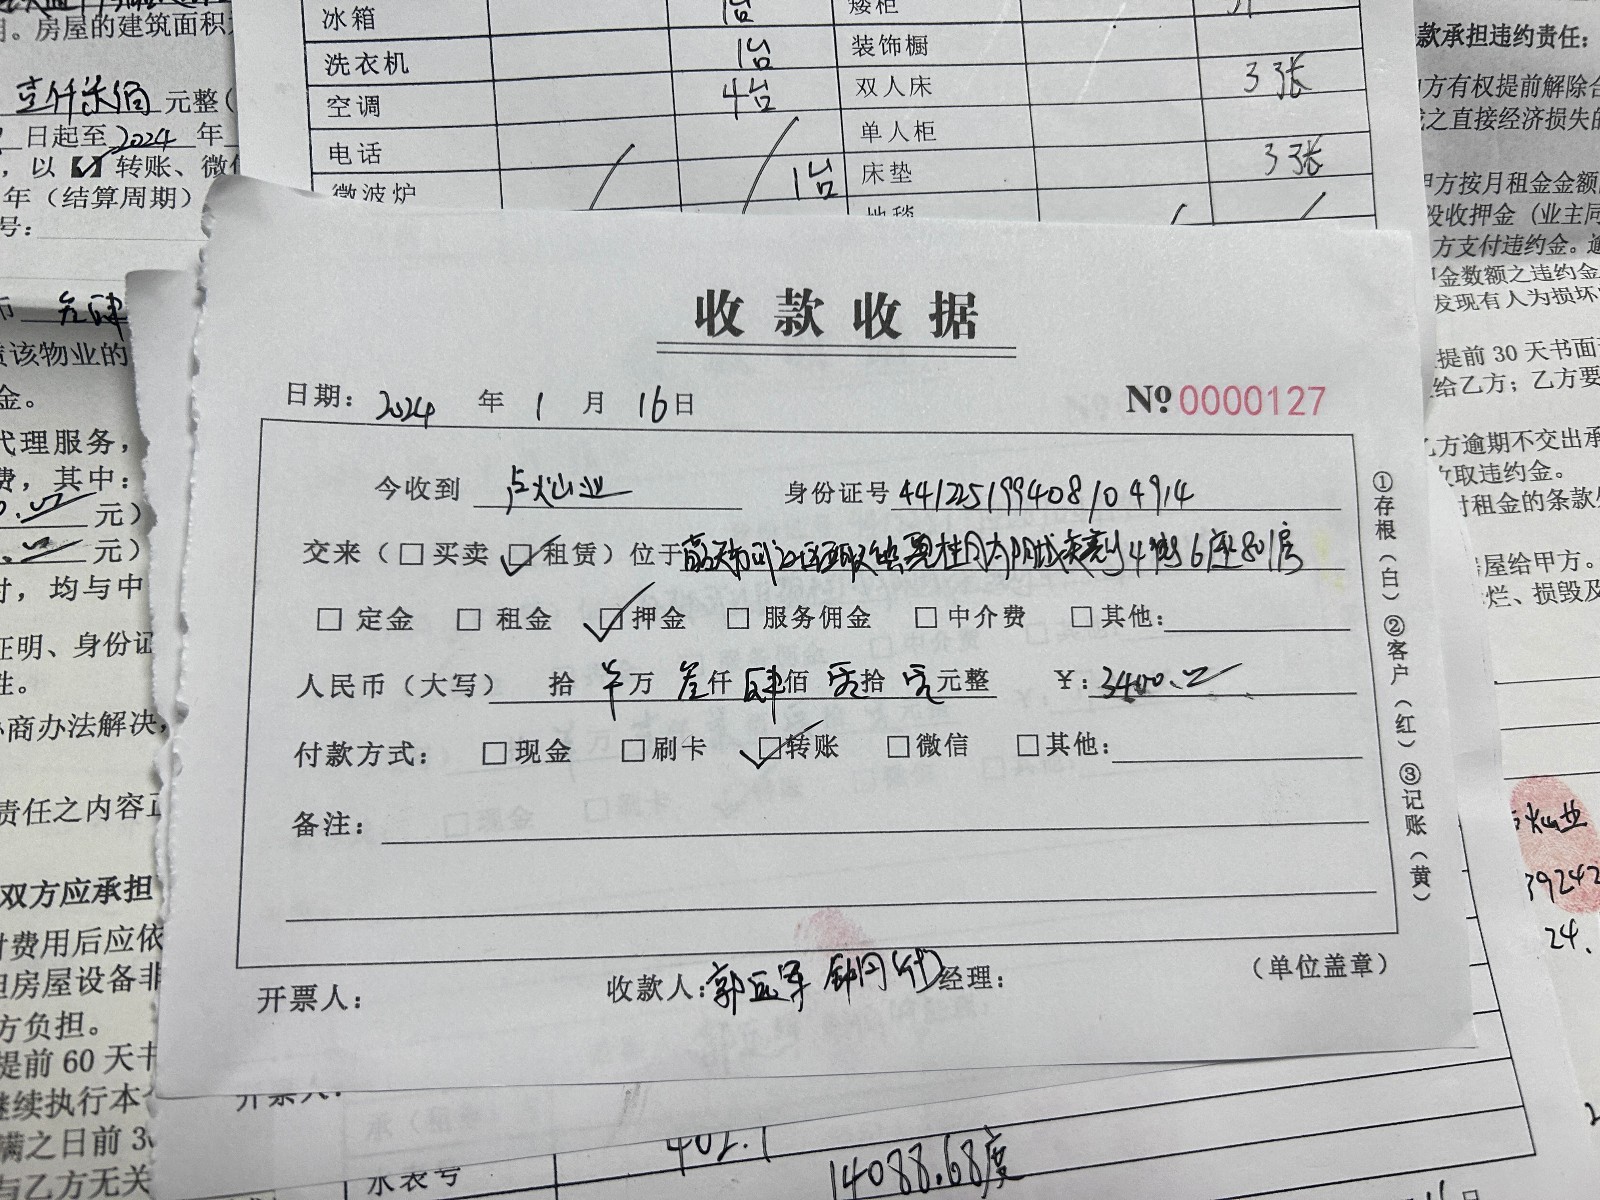 冰箱 1台 矮柜
洗衣机 1台 装饰橱
空调 4台 双人床 3张
电话 单人柜
微波炉 1台 床垫 3张
地毯
。房屋的建筑面积
壹仟柒佰 元整(
日起至2024年
,以【√】转账、微信
年(结算周期)
号:
该物业的
金。
代理服务,
费,其中:
元)
元)
时,均与中
证明、身份证
性。
办商办法解决,
责任之内容正
双方应承担
付费用后应依
担房屋设备非
方负担。
提前60天书
继续执行本
满之日前3
与乙方无关
款承担违约责任:
方有权提前解除合
之直接经济损失的
甲方按月租金金额
没收押金(业主同
方支付违约金。逾
金数额之违约金
发现有人为损坏
提前30天书面
给乙方;乙方要
乙方逾期不交出承
收取违约金。
付租金的条款
房屋给甲方。
烂、损毁及
收款收据
日期:2024年1月16日 № 0000127
今收到 卢灿业 身份证号 441225199408104914
交来(□买卖 ☑租赁)位于 4街6座801房
□定金 □租金 ☑押金 □服务佣金 □中介费 □其他:
人民币(大写) 拾 万 叁仟肆佰零拾零元整 ¥:3400.00
付款方式: □现金 □刷卡 ☑转账 □微信 □其他:
备注:
开票人: 收款人:郭远军 (代) 经理: (单位盖章)
①存根(白)②客户(红)③记账(黄)
开票人:
水表号 402.1
14088.68度
灿业
39242
24.